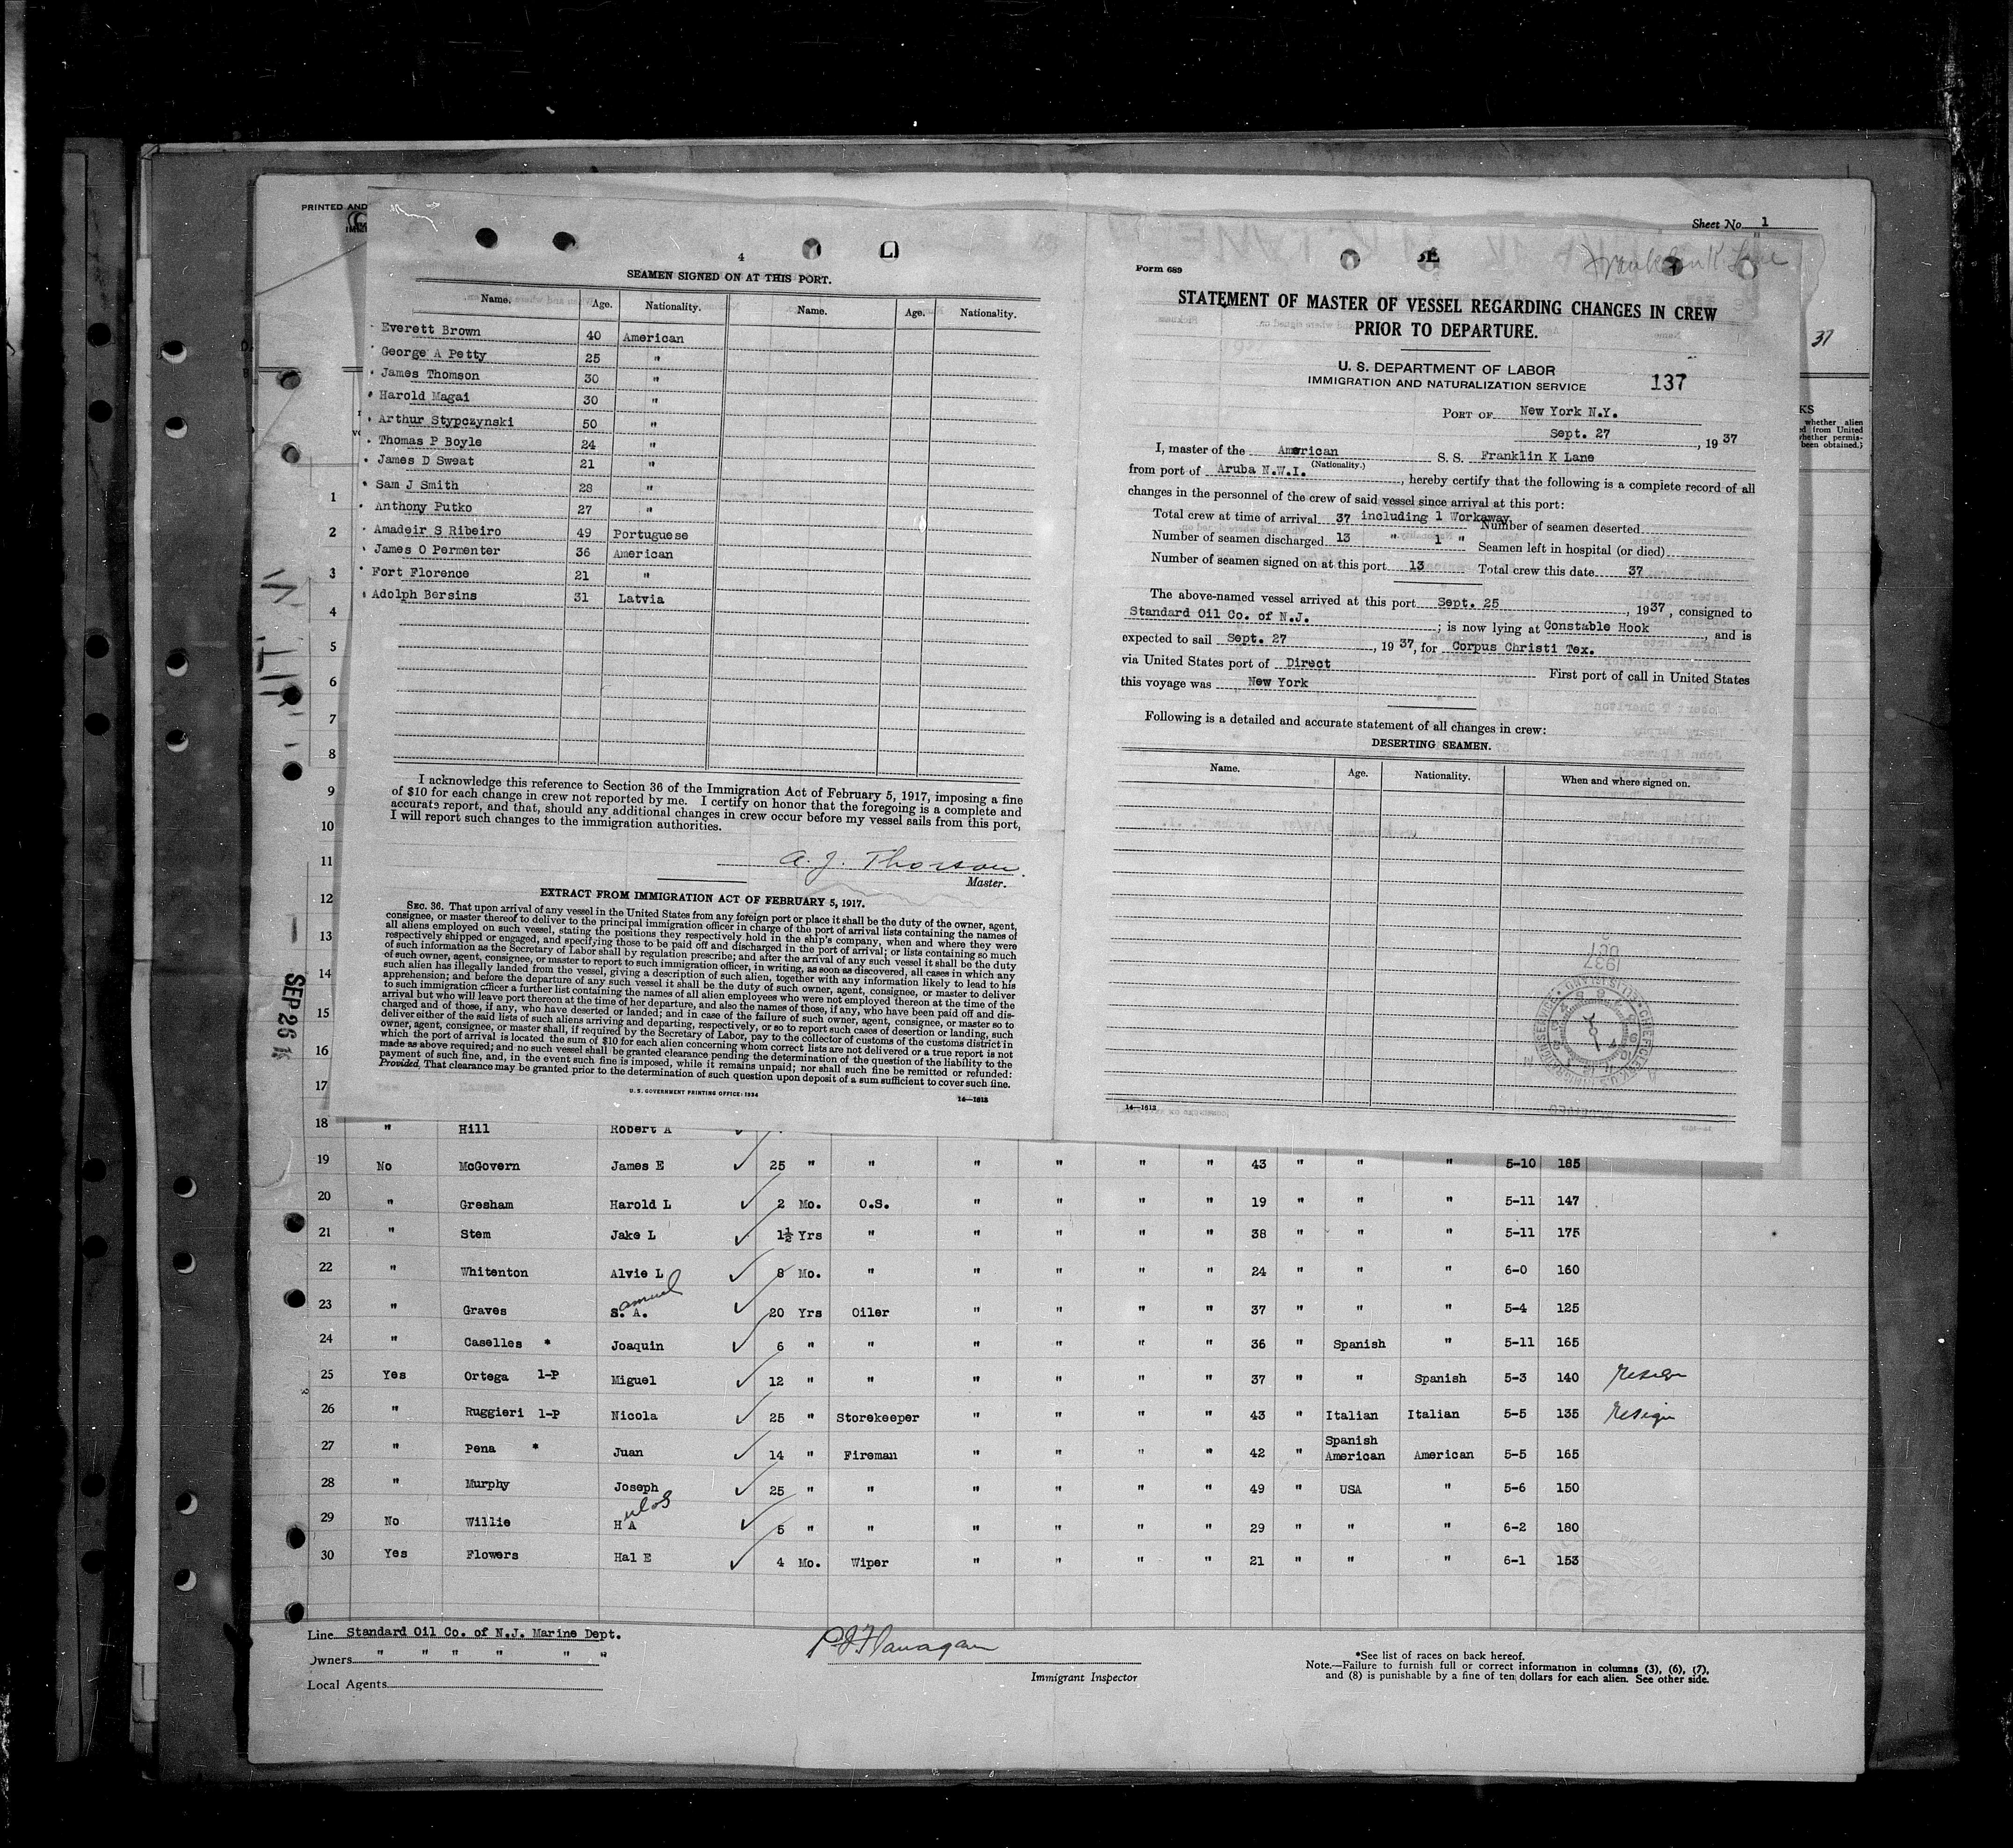 PRINTED AND
Sheet No. 1
4
SEAMEN SIGNED ON AT THIS PORT.
Name. Age. Nationality. Name. Age. Nationality.
Everett Brown 40 American
George A Petty 25 "
James Thomson 30 "
Harold Magai 30 "
Arthur Stypczynski 50 "
Thomas P Boyle 24 "
James D Sweat 21 "
Sam J Smith 28 "
Anthony Putko 27 "
Amadeir S Ribeiro 49 Portuguese
James O Permenter 36 American
Fort Florence 21 "
Adolph Bersins 31 Latvia
I acknowledge this reference to Section 36 of the Immigration Act of February 5, 1917, imposing a fine
of $10 for each change in crew not reported by me. I certify on honor that the foregoing is a complete and
accurate report, and that, should any additional changes in crew occur before my vessel sails from this port,
I will report such changes to the immigration authorities.
A. J. Thorson
Master.
EXTRACT FROM IMMIGRATION ACT OF FEBRUARY 5, 1917.
SEC. 36. That upon arrival of any vessel in the United States from any foreign port or place it shall be the duty of the owner, agent,
consignee, or master thereof to deliver to the principal immigration officer in charge of the port of arrival lists containing the names of
all aliens employed on such vessel, stating the positions they respectively hold in the ship's company, when and where they were
respectively shipped or engaged, and specifying those to be paid off and discharged in the port of arrival; or lists containing so much
of such information as the Secretary of Labor shall by regulation prescribe; and after the arrival of any such vessel it shall be the duty
of such owner, agent, consignee, or master to report to such immigration officer, in writing, as soon as discovered, all cases in which any
such alien has illegally landed from the vessel, giving a description of such alien, together with any information likely to lead to his
apprehension; and before the departure of any such vessel it shall be the duty of such owner, agent, consignee, or master to deliver
to such immigration officer a further list containing the names of all alien employees who were not employed thereon at the time of the
arrival but who will leave port thereon at the time of her departure, and also the names of those, if any, who have been paid off and dis-
charged and of those, if any, who have deserted or landed; and in case of the failure of such owner, agent, consignee, or master so to
deliver either of the said lists of such aliens arriving and departing, respectively, or so to report such cases of desertion or landing, such
owner, agent, consignee, or master shall, if required by the Secretary of Labor, pay to the collector of customs of the customs district in
which the port of arrival is located the sum of $10 for each alien concerning whom correct lists are not delivered or a true report is not
made as above required; and no such vessel shall be granted clearance pending the determination of the question of the liability to the
payment of such fine, and, in the event such fine is imposed, while it remains unpaid; nor shall such fine be remitted or refunded:
Provided, That clearance may be granted prior to the determination of such question upon deposit of a sum sufficient to cover such fine.
U. S. GOVERNMENT PRINTING OFFICE: 1934
14—1613
Form 689
Franklin K Lane
STATEMENT OF MASTER OF VESSEL REGARDING CHANGES IN CREW
PRIOR TO DEPARTURE.
37
U. S. DEPARTMENT OF LABOR
IMMIGRATION AND NATURALIZATION SERVICE 137
PORT OF New York N.Y.
Sept. 27, 1937
I, master of the American S. S. Franklin K Lane
(Nationality.)
from port of Aruba N.W.I., hereby certify that the following is a complete record of all
changes in the personnel of the crew of said vessel since arrival at this port:
Total crew at time of arrival 37 including 1 Workaway Number of seamen deserted
Number of seamen discharged 13 " 1 " Seamen left in hospital (or died)
Number of seamen signed on at this port 13 Total crew this date 37
The above-named vessel arrived at this port Sept. 25, 1937, consigned to
Standard Oil Co. of N.J. ; is now lying at Constable Hook, and is
expected to sail Sept. 27, 1937, for Corpus Christi Tex.
via United States port of Direct First port of call in United States
this voyage was New York
Following is a detailed and accurate statement of all changes in crew:
DESERTING SEAMEN.
Name. Age. Nationality. When and where signed on.
14—1613
KS
whether alien
d from United
whether permis-
been obtained.)
SEP 26
1
2
3
4
5
6
7
8
9
10
11
12
13
14
15
16
17
18 " Hill Robert A
19 No McGovern James E 25 " " " " " " 43 " " " 5-10 185
20 " Gresham Harold L 2 Mo. O.S. " " " " 19 " " " 5-11 147
21 " Stem Jake L 1½ Yrs " " " " " 38 " " " 5-11 175
22 " Whitenton Alvie L 8 Mo. " " " " " 24 " " " 6-0 160
23 " Graves S. A. amuel 20 Yrs Oiler " " " " 37 " " " 5-4 125
24 " Caselles * Joaquin 6 " " " " " " 36 " Spanish " 5-11 165
25 Yes Ortega 1-P Miguel 12 " " " " " " 37 " " Spanish 5-3 140 resign
26 " Ruggieri 1-P Nicola 25 " Storekeeper " " " " 43 " Italian Italian 5-5 135 resign
27 " Pena * Juan 14 " Fireman " " " " 42 " Spanish American American 5-5 165
28 " Murphy Joseph 25 " " " " " " 49 " USA " 5-6 150
29 No Willie H A 5 " " " " " " 29 " " " 6-2 180
30 Yes Flowers Hal E 4 Mo. Wiper " " " " 21 " " " 6-1 153
Line Standard Oil Co. of N.J. Marine Dept.
Owners " " " " " "
Local Agents
P J Flanagan
Immigrant Inspector
*See list of races on back hereof.
Note.—Failure to furnish full or correct information in columns (3), (6), (7),
and (8) is punishable by a fine of ten dollars for each alien. See other side.